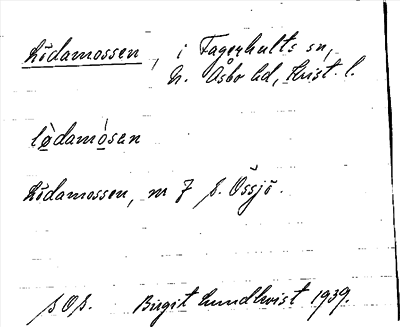 Lödamossen, i Fagerhults sn,
N. Åsbo hd, Krist. l.
lö̀damòsan
Lödamossen, nr 7 S. Össjö.
SOS. Birgit Lundkvist 1939.